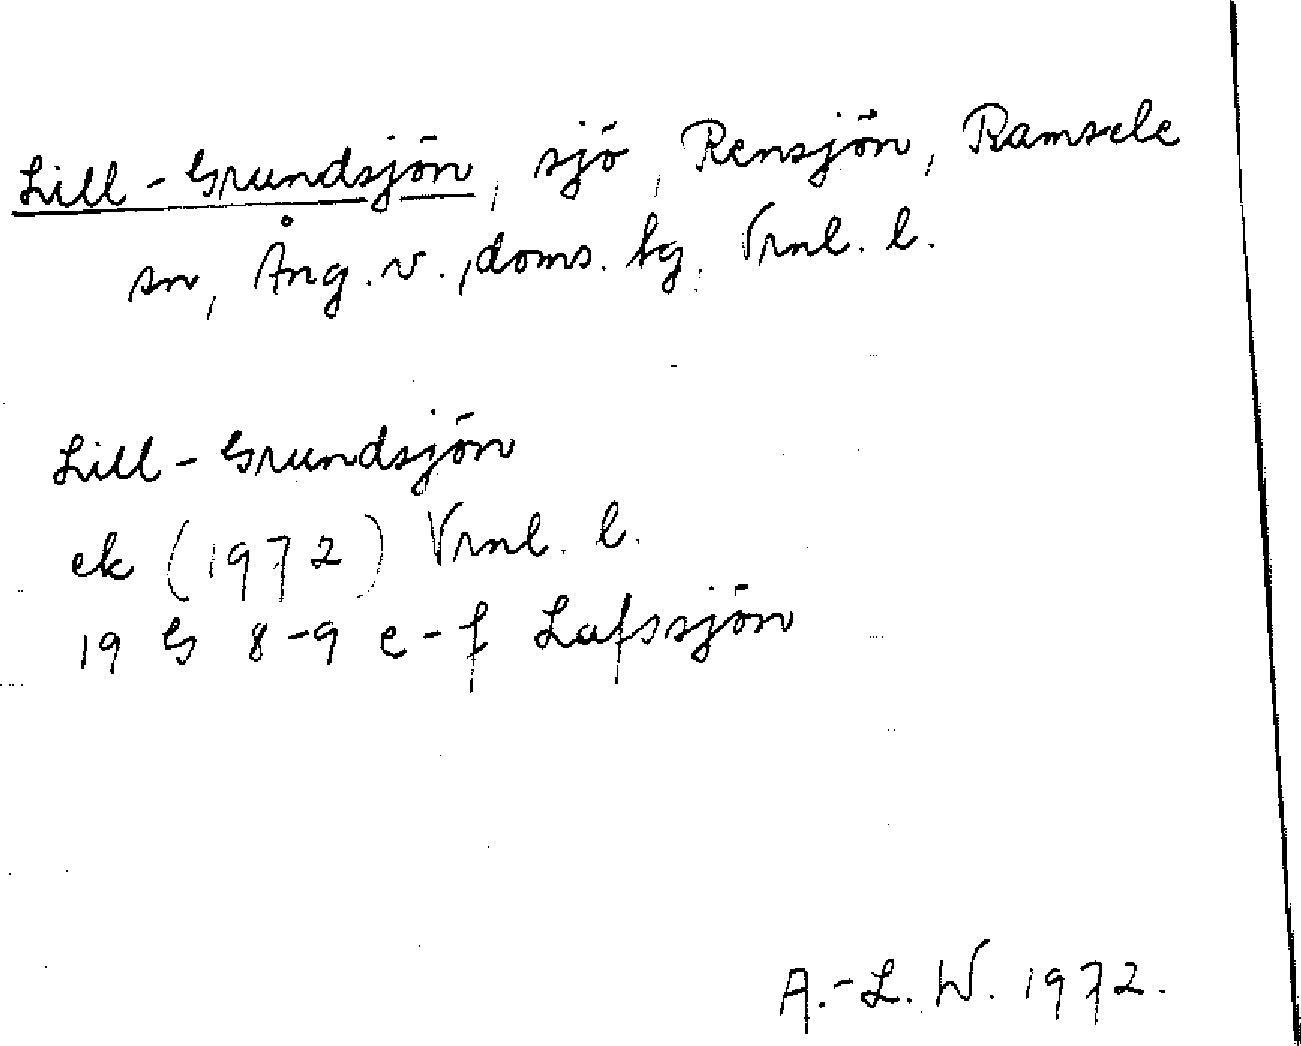 Lill-Grundsjön, sjö, Rensjön, Ramsele
sn, Ång. v., doms. tg, Vrnl. l.
Lill-Grundsjön
ek (1972) Vrnl. l.
19 G 8-9 e-f Lafssjön
A.-L. W. 1972.